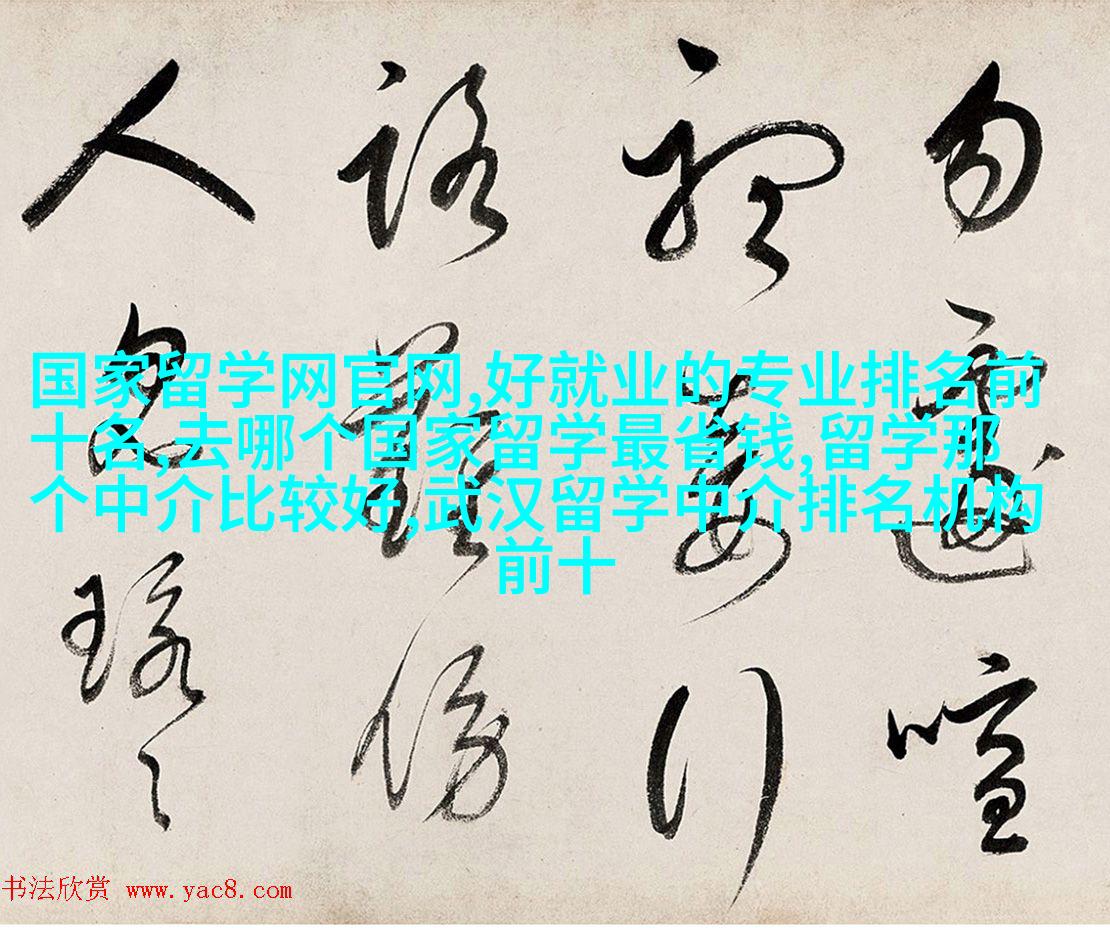 国家留学网官网,好就业的专业排名前
十名,去哪个国家留学最省钱,留学那
个中介比较好,武汉留学中介排名机构
前十
勿喧
行
路難傍
人
书法欣赏 www.yac8.com